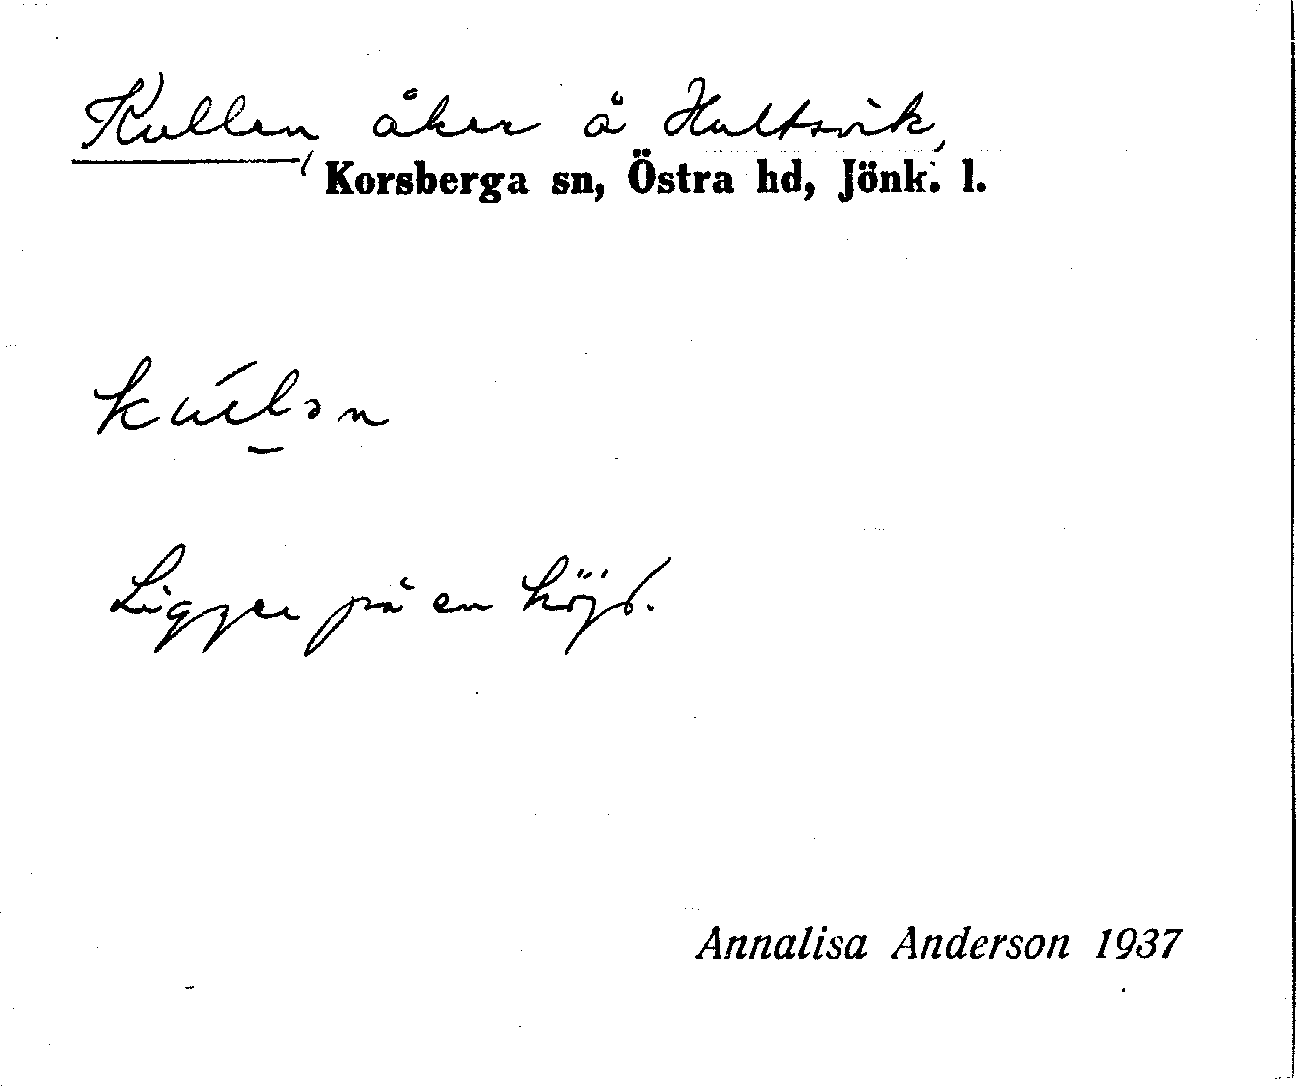 Kullen, åker å Hultsvik,
Korsberga sn, Östra hd, Jönk. l.
kúl̠ən
Ligger på en höjd.
Annalisa Anderson 1937